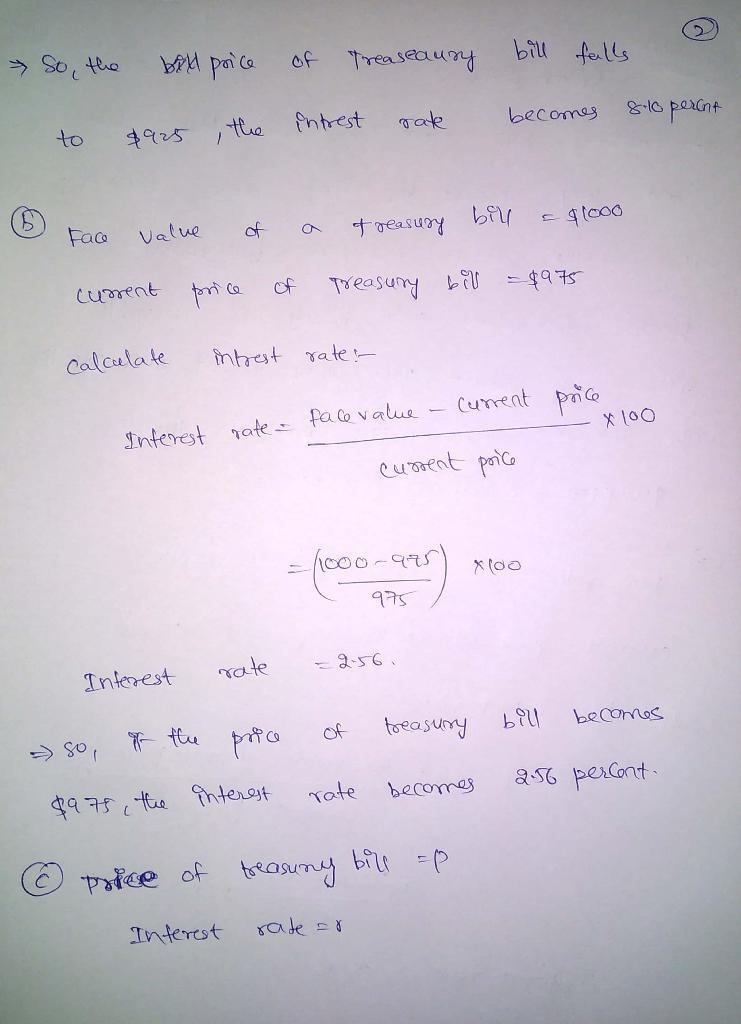 ②
⇒ So, the price of Treaseaury bill falls
to $925, the intrest rate becomes 8.10 percnt
ⓑ Face value of a treasury bill = $1000
current price of Treasury bill = $975
calculate intrest rate:-
Interest rate = face value - current price × 100
current price
= (1000 - 975) × 100
975
Interest rate = 2.56.
⇒ so, if the price of treasury bill becomes
$975, the interest rate becomes 2.56 percent.
ⓒ price of treasury bill = p
Interest rate = r